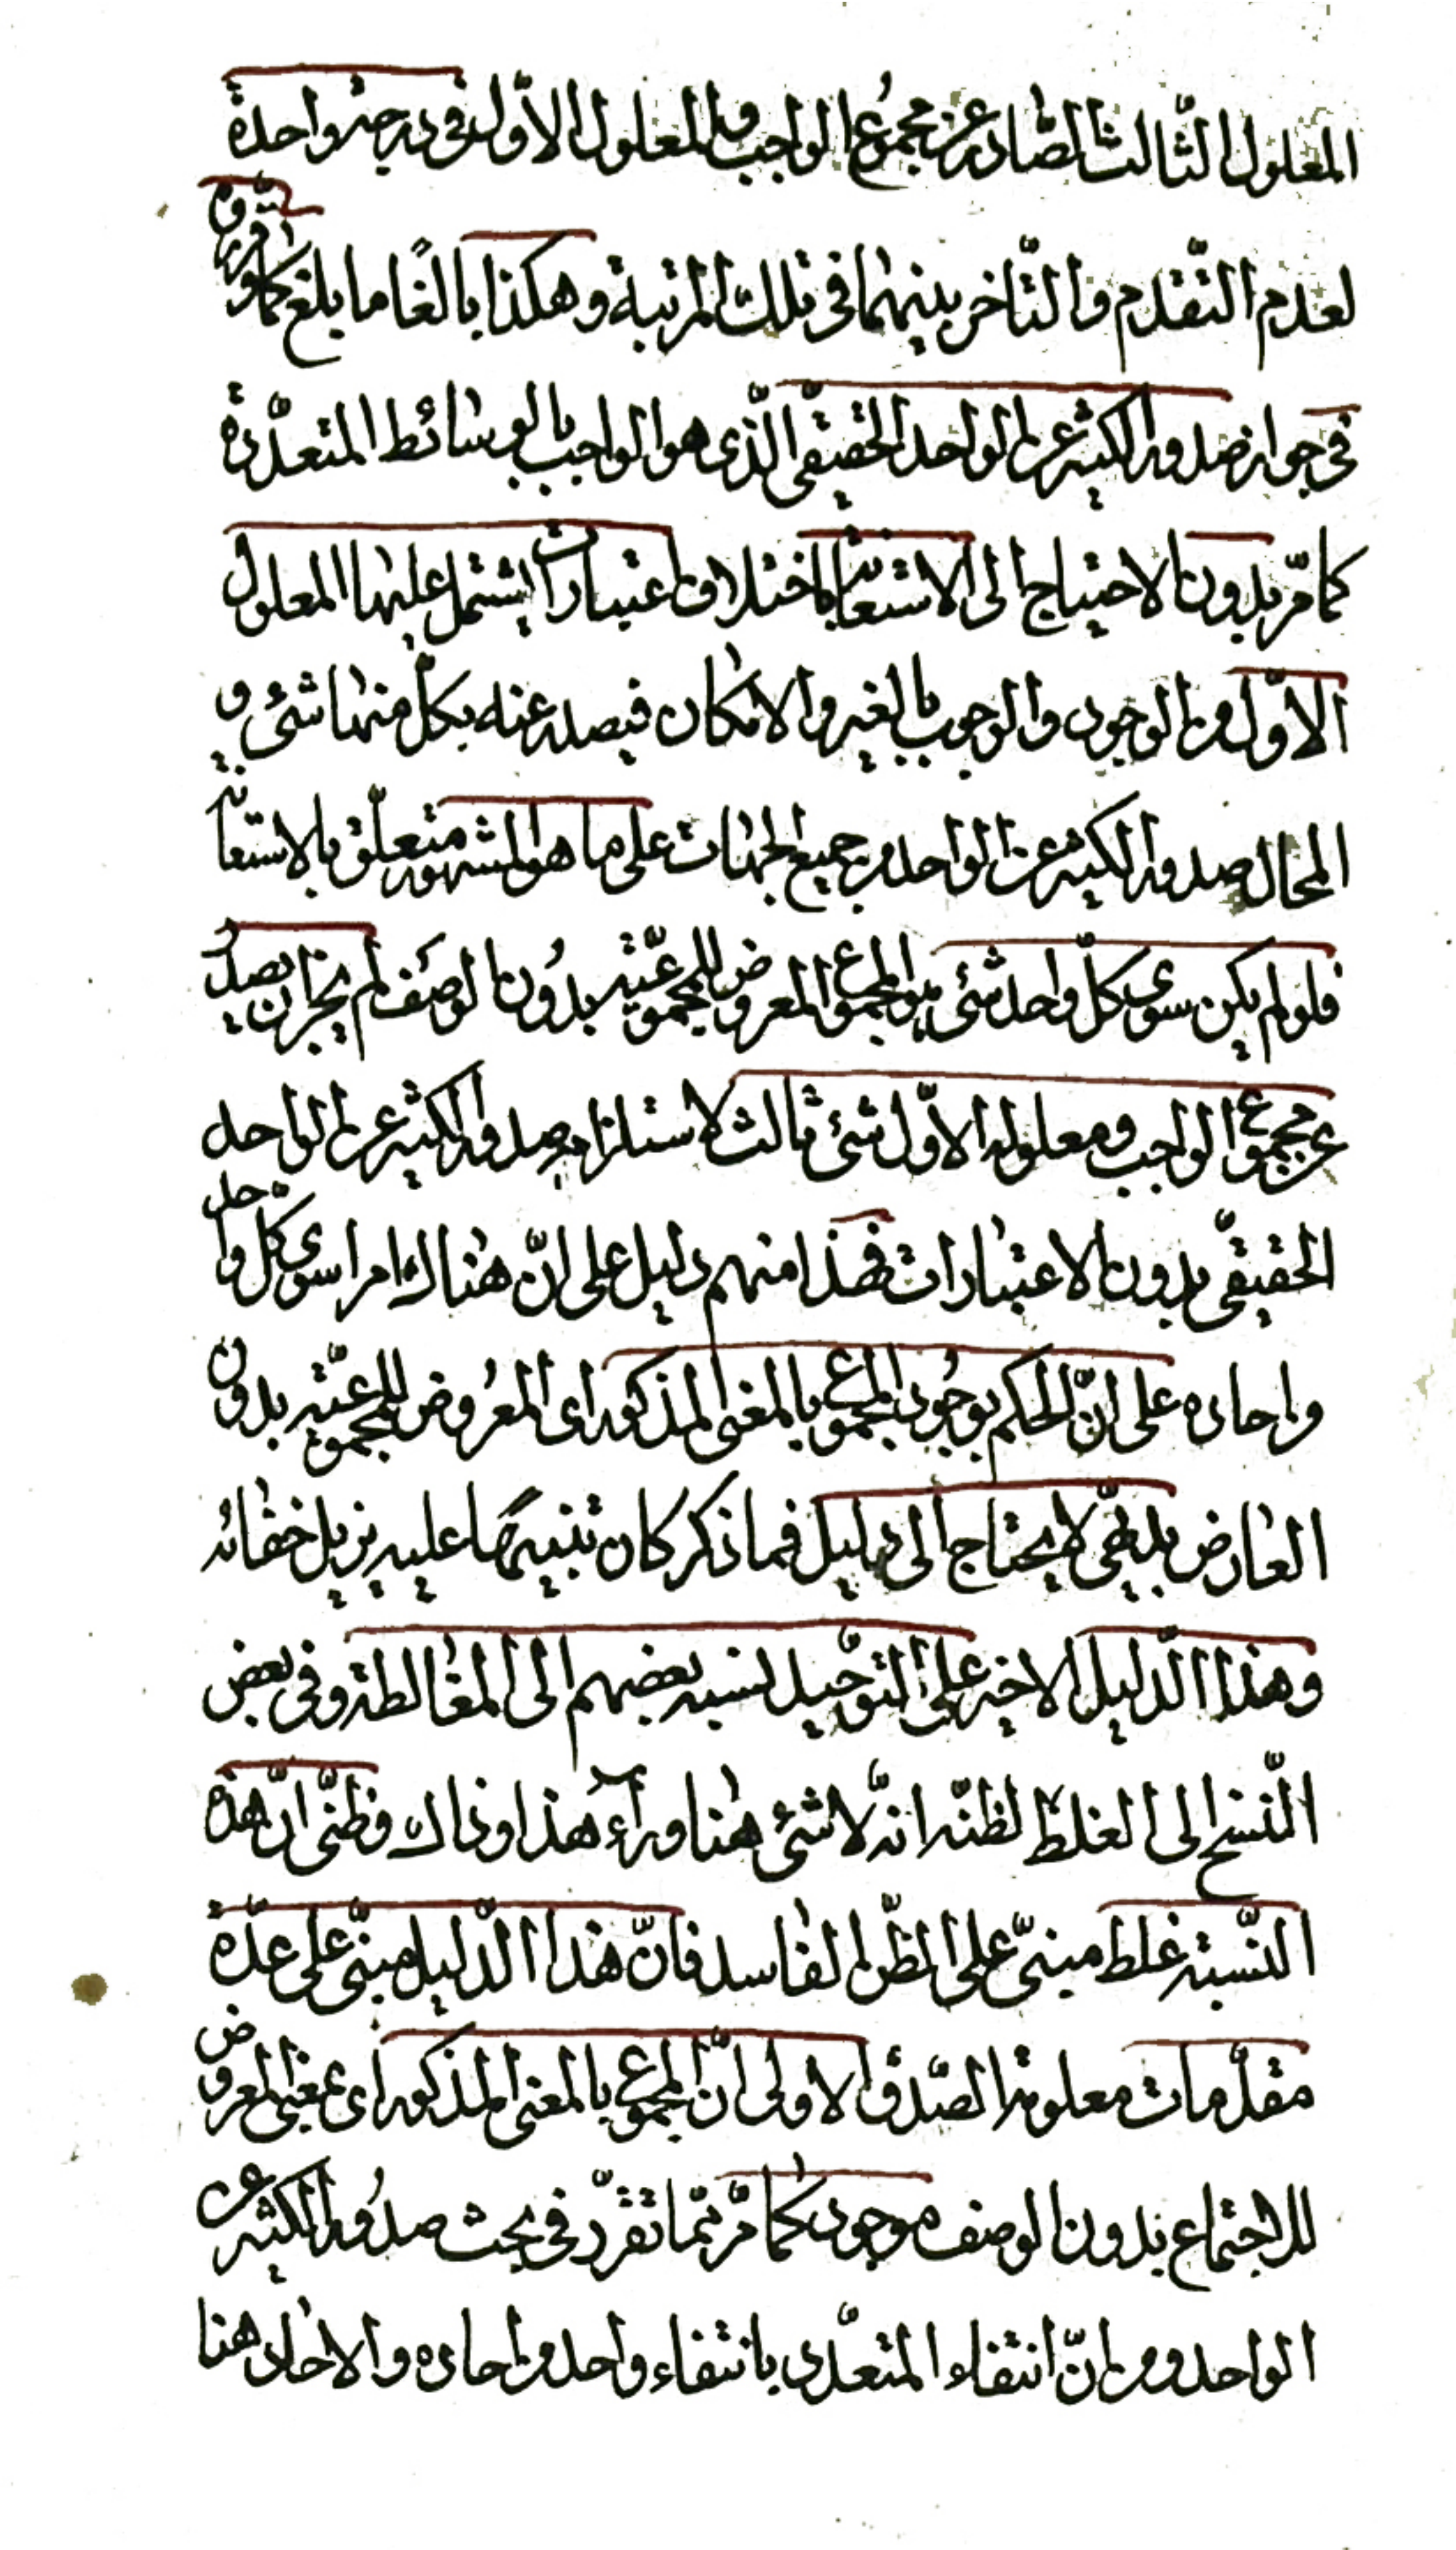 المعلول الثّالث الصّادر عن مجمُوع الواجب والمعلول الاوّل في درجة واحدة
لعدم التّقدم والتّاخر بينهما في تلك المرتبة وهكذا بالغًا ما بلغ كما
في جواز صدور الكثير عن الواحد الحقيقي الّذي هو الواجب بالوسائط المتعدّدة
كما مرّ بدون الاحتياج الى الاستعانة باختلاف اعتبارات يشتمل عليها المعلول
الاوّل من الوجود والوجوب بالغير والامكان فيصدر عنه بكلّ منها شئ و
المحال صدور الكثير عن الواحد من جميع الجهات على ما هو المشهور متعلّق بالاستعانة
فلو لم يكن سوى كلّ واحد شئ هو المجموع المعروض للمجموعيّة بدُون الوصف لم يجز ان يصدُر
عن مجموع الواجب ومعلوله الاوّل شئ ثالث لاستلزامه صدور الكثير عن الواحد
الحقيقي بدون الاعتبارات فهذا منهم دليل على انّ هناك امرا سوى كل واحد
واحاده على انّ الحكم بوجُود المجموع بالمعنى المذكور اى المعُروض للمجموعيّة بدون
العارض بديهيّ لا يحتاج الى دليل فما ذكر كان تنبيهًا عليه يزيل خفائه
وهذا الدّليل الاخير على التّوحيد نسبه بعضهم الى المغالطة وفي بعض
النّسخ الى الغلط لظنّه انّه لا شئ هنا وراء هذا وذاك وظنّي انّ هذه
النّسبة غلط مبنيّ على الظّن الفاسد فانّ هذا الدّليل مبنيّ على عدّة
مقدّمات معلومة الصّدق الاولى انّ المجموع بالمعنى المذكور اى بمعنى المعروض
للاجتماع بدون الوصف موجود كما مرّ ممّا تقرّر في بحث صدُور الكثير عن
الواحد ومن انّ انتفاء المتعدّد بانتفاء واحد من احاده والاحاد هنا